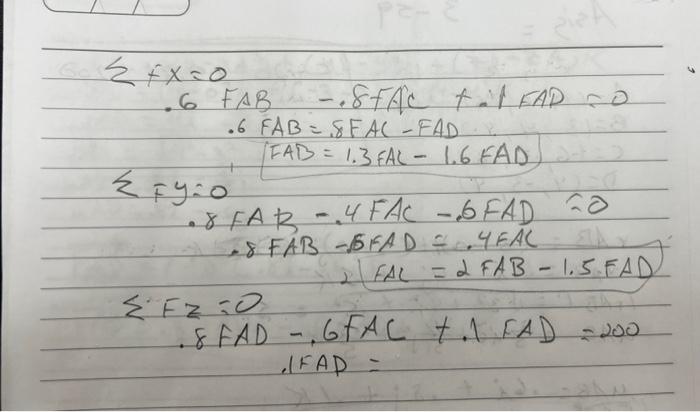 Σ FX=0
.6 FAB -.8FAC +.1 FAD =0
.6 FAB = .8FAC - FAD
FAB = 1.3 FAC - 1.6 FAD
Σ Fy=0
.8 FAB -.4 FAC -.6 FAD =0
.8 FAB -.6FAD = .4FAC
FAC = 2 FAB - 1.5 FAD
Σ Fz =0
.8 FAD -.6 FAC +.1 FAD =200
.1FAD =